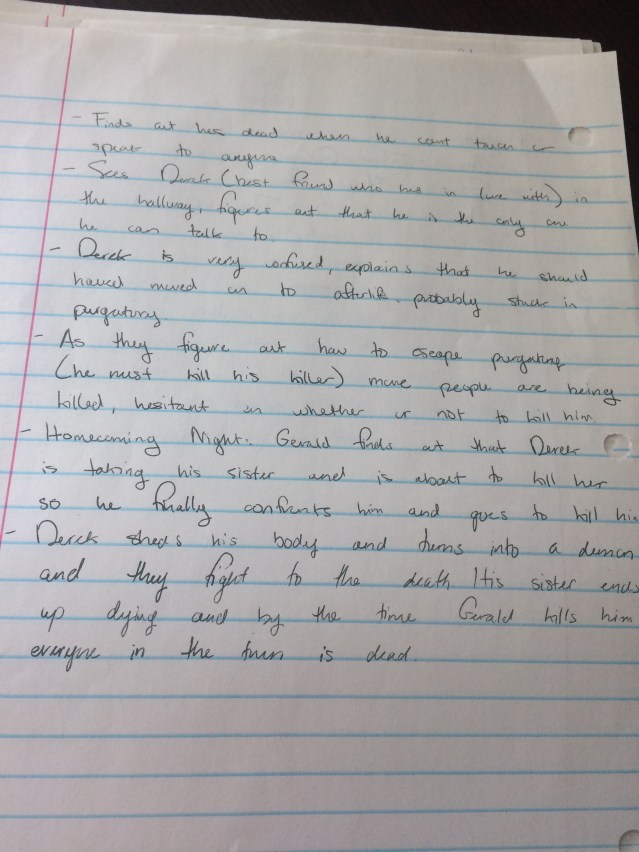 - Finds out hes dead when he cant touch or
speak to anyone
- Sees Derek (best friend who hes in love with) in
the hallway, figures out that he is the only one
he can talk to.
- Derek is very confused, explains that he should
haved moved on to afterlife. probably stuck in
purgatory
- As they figure out how to escape purgatory
(he must kill his killer) more people are being
killed, hesitant on whether or not to kill him.
- Homecoming Night. Gerald finds out that Derek
is taking his sister and is about to kill her
so he finally confronts him and goes to kill him
- Derek sheds his body and turns into a demon
and they fight to the death. His sister ends
up dying and by the time Gerald kills him
everyone in the town is dead.